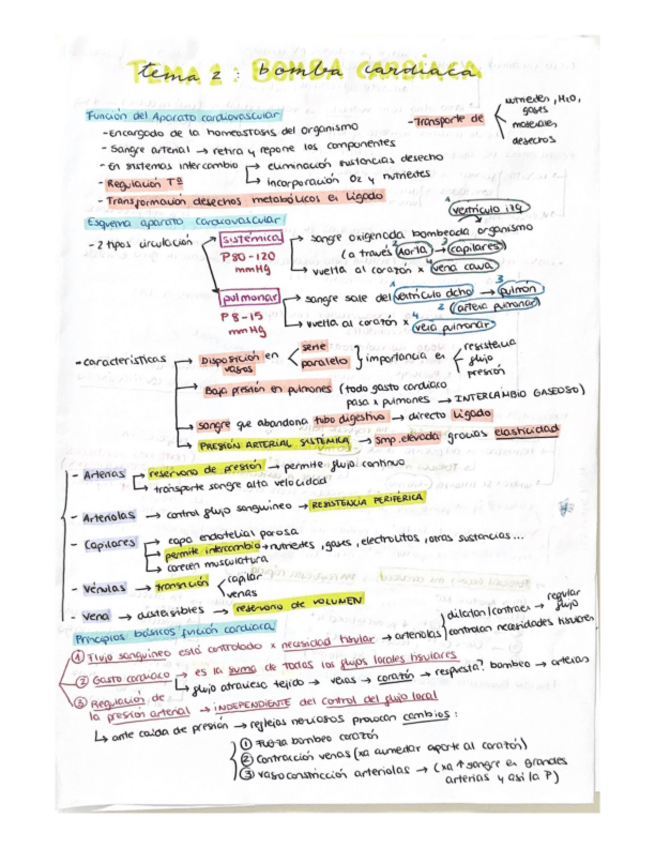 TEMA 2: BOMBA CARDIACA
tema 2: bomba cardiaca
Función del Aparato cardiovascular
- Encargado de la homeostasis del organismo
- Transporte de
nutrientes, H2O,
gases
materiales,
desechos
- Sangre arterial → retira y repone los componentes
- En sistemas intercambio
eliminación sustancias desecho
incorporación O2 y nutrientes
- Regulación Tª
- Transformación desechos metabólicos en hígado
Esquema aparato cardiovascular
- 2 tipos circulación
sistémica
P80-120
mmHg
1 ventrículo izq
→ sangre oxigenada bombeada organismo
(a través 2 aorta → 3 capilares)
→ vuelta al corazón x 4 vena cava
pulmonar
P8-15
mmHg
→ sangre sale del 1 ventrículo dcho → 3 pulmón
2 (arteria pulmonar)
→ vuelta al corazón x 4 vena pulmonar
- características
→ Disposición en vasos
serie
paralelo
importancia en
resistencia
flujo
presión
→ Baja presión en pulmones (todo gasto cardiaco
pasa x pulmones → INTERCAMBIO GASEOSO)
→ sangre que abandona tubo digestivo → directo hígado
→ PRESIÓN ARTERIAL SISTÉMICA → smp. elevada gracias elasticidad
- Arterias
reservorio de presión → permite flujo continuo
transporte sangre alta velocidad
- Arteriolas → control flujo sanguíneo → RESISTENCIA PERIFÉRICA
- Capilares
→ capa endotelial porosa
→ permite intercambio → nutrientes, gases, electrolitos, otras sustancias...
→ carecen musculatura
- Vénulas → transición
capilar
venas
- Vena → distensibles → reservorio de VOLUMEN
Principios básicos función cardiaca
① Flujo sanguíneo está controlado x necesidad tisular → arteriolas
dilatan/contraen → regular flujo
controlan necesidades tisulares
② Gasto cardiaco → es la suma de todos los flujos locales tisulares
↳ flujo atraviesa tejido → venas → corazón → respuesta? bombeo → arterias
③ Regulación de
la presión arterial → INDEPENDIENTE del control del flujo local
↳ ante caída de presión → reflejos nerviosos provocan cambios:
① Fuerza bombeo corazón
② Contracción venas (xa aumentar aporte al corazón)
③ vasoconstricción arteriolas → (xa ↑ sangre en grandes
arterias y así la P)